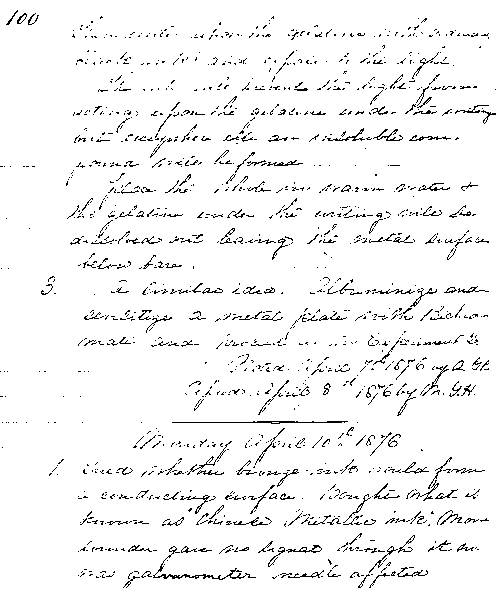 100
then write upon the gelatine with
ink and expose to the light.
The ink will prevent the light from
acting upon the gelatine under the writing
but everywhere else an insoluble com-
pound will be formed
Place the whole in warm water &
the gelatine under the writing will be
dissolved out leaving the metal surface
below bare.
3. A similar idea. Albuminize and
sensitize a metal plate with Bichro-
mate and proceed as in Experiment 2
April 7th 1876 by A.G.B.
April 8th 1876 by M.G.H.
Monday April 10th 1876
1. Tried whether bronze-ink would form
a conducting surface. Bought what is
known as "Chinese Metallic ink". Move
sounder gave no signal through it nor
was galvanometer needle affected